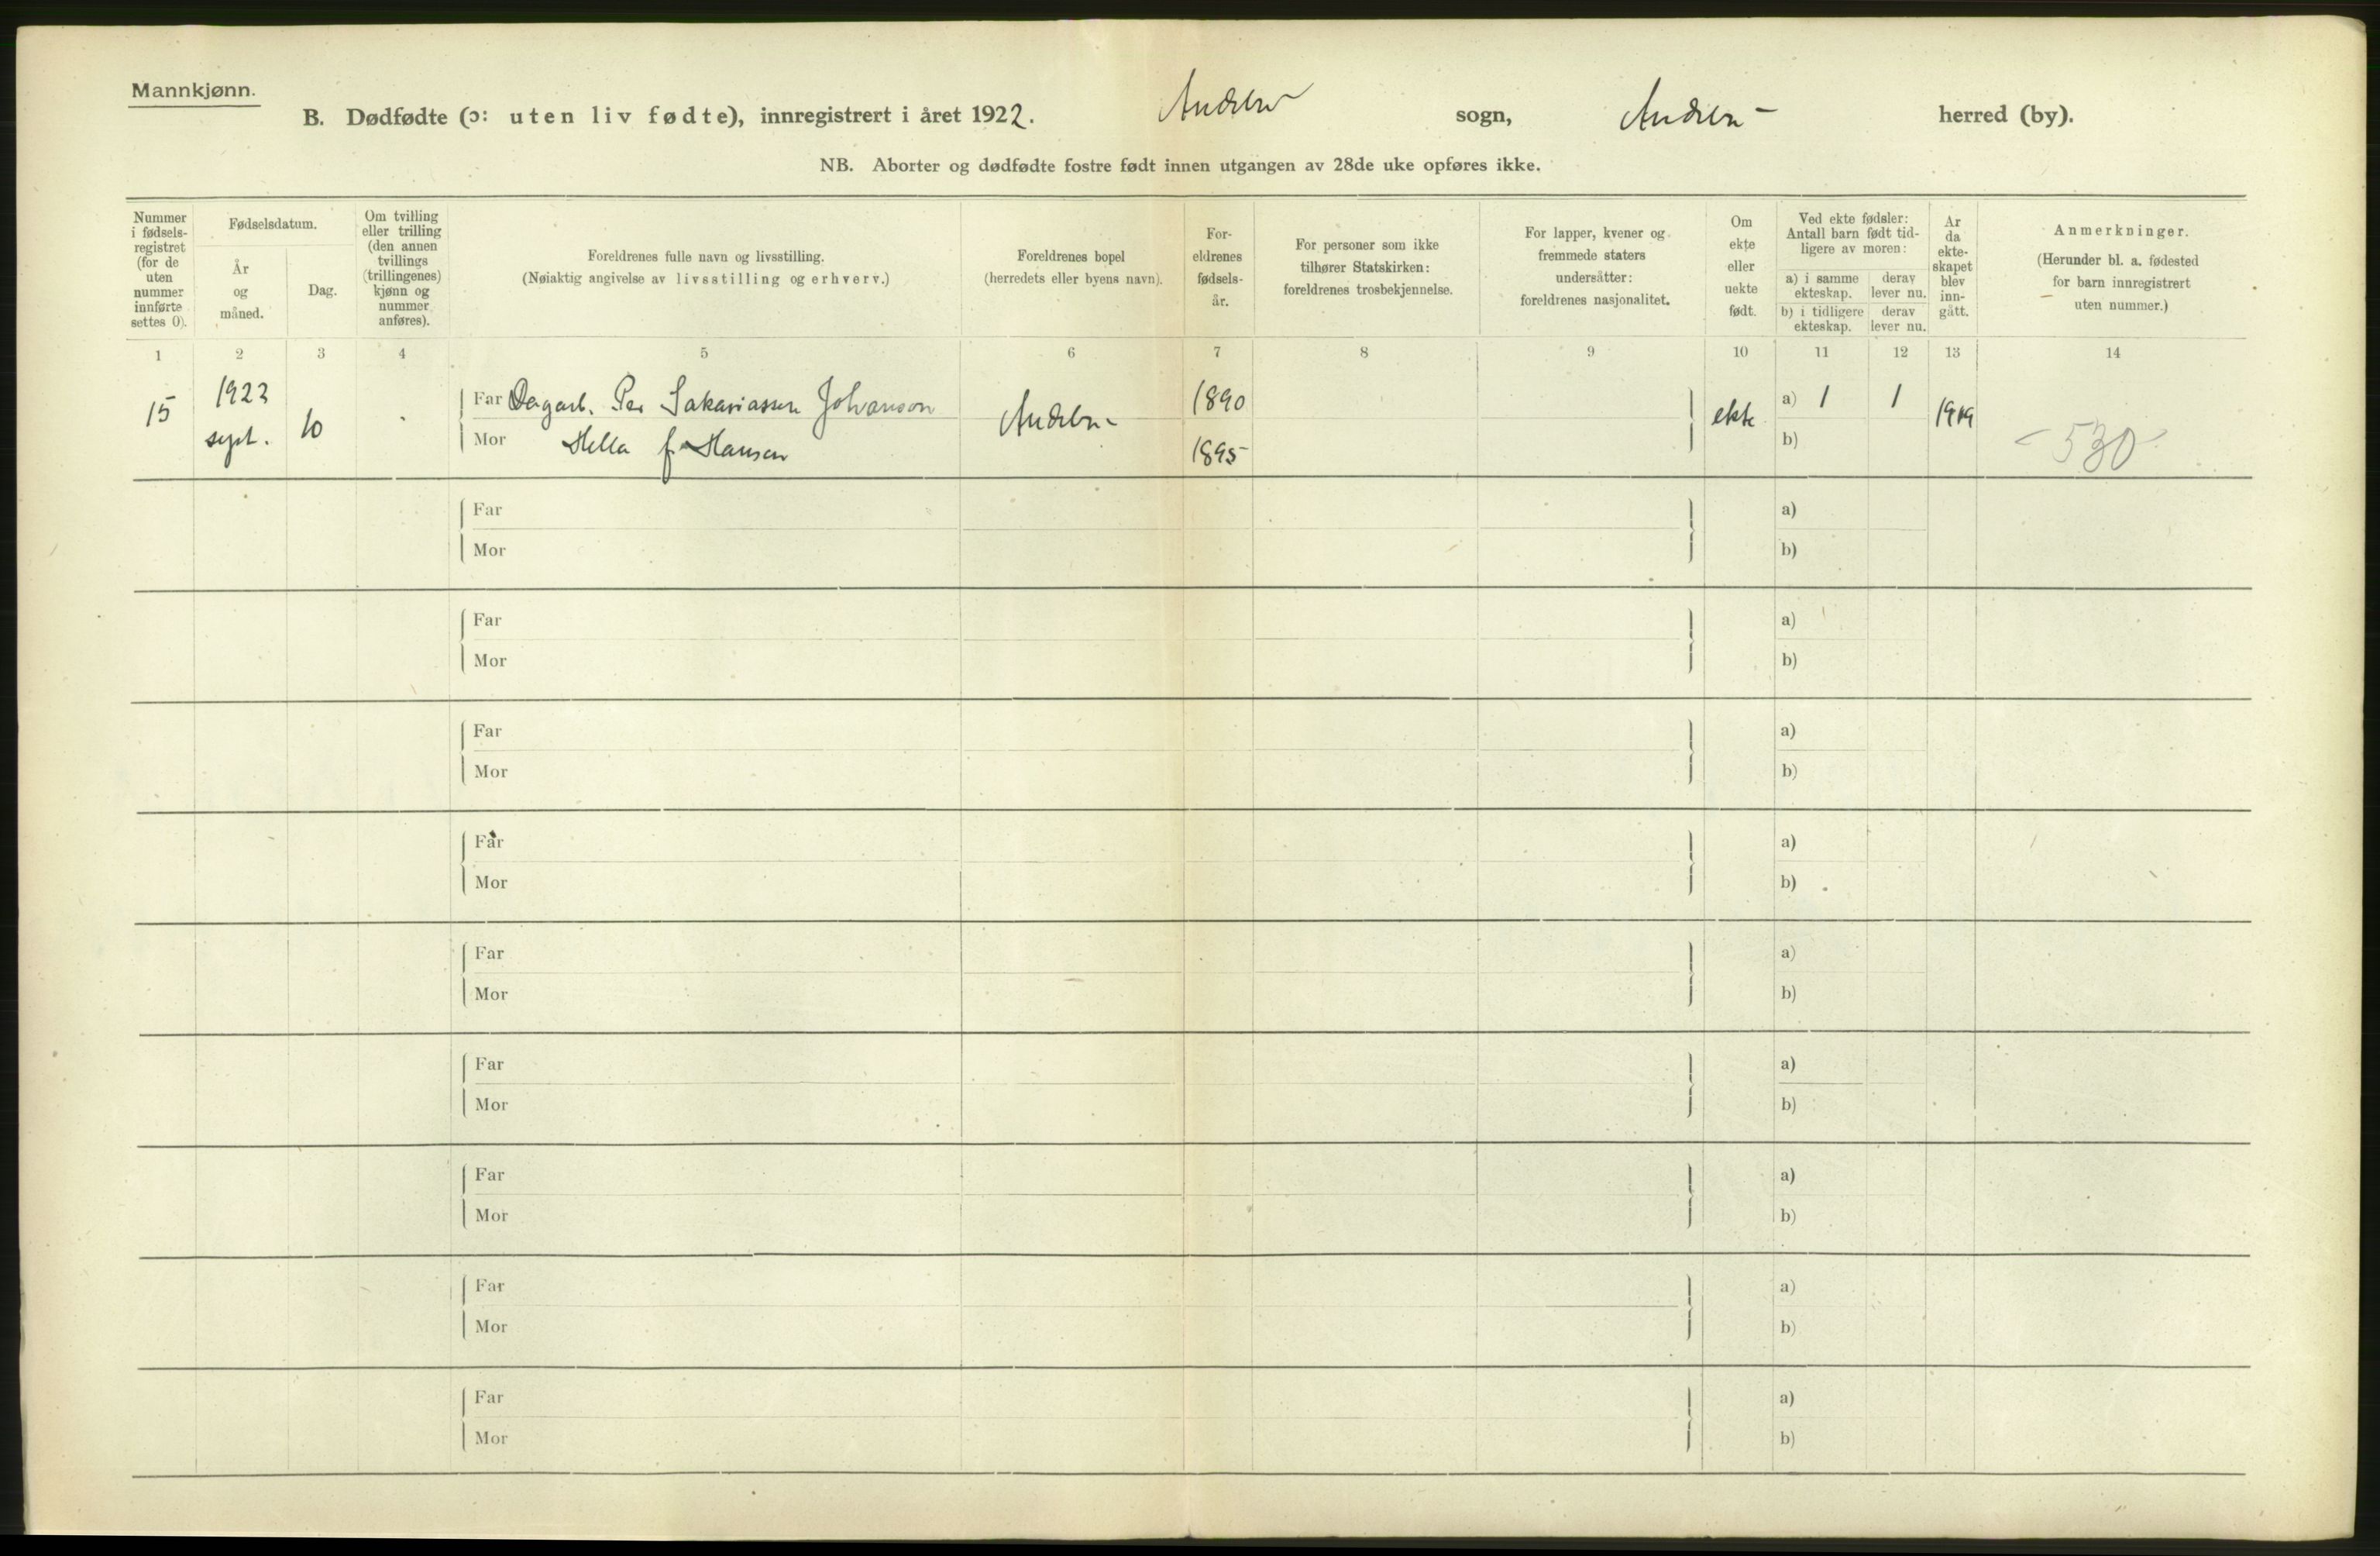 Mannkjønn.
B. Dødfødte (ɔ: uten liv fødte), innregistrert i året 1922. Andebu sogn, Andebu herred (by).
NB. Aborter og dødfødte fostre født innen utgangen av 28de uke opføres ikke.
Nummer i fødsels-registret (for de uten nummer innførte settes 0).
Fødselsdatum.
År og måned.
Dag.
Om tvilling eller trilling (den annen tvillings (trillingenes) kjønn og nummer anføres).
Foreldrenes fulle navn og livsstilling.
(Nøiaktig angivelse av livsstilling og erhverv.)
Foreldrenes bopel
(herredets eller byens navn).
For-eldrenes fødsels-år.
For personer som ikke tilhører Statskirken: foreldrenes trosbekjennelse.
For lapper, kvener og fremmede staters undersåtter: foreldrenes nasjonalitet.
Om ekte eller uekte født.
Ved ekte fødsler: Antall barn født tid-ligere av moren:
a) i samme ekteskap.
derav lever nu.
b) i tidligere ekteskap.
derav lever nu.
År da ekte-skapet blev inn-gått.
Anmerkninger.
(Herunder bl. a. fødested for barn innregistrert uten nummer.)
1 2 3 4 5 6 7 8 9 10 11 12 13 14
15 1922 sept. 10
Far Dagarb. Per Sakariassen Johanson
Mor Hella f. Hansen
Andebu
1890
1895
ekte
a) 1 1
b)
1919
530
Far a)
Mor b)
Far a)
Mor b)
Far a)
Mor b)
Far a)
Mor b)
Far a)
Mor b)
Far a)
Mor b)
Far a)
Mor b)
Far a)
Mor b)
Far a)
Mor b)